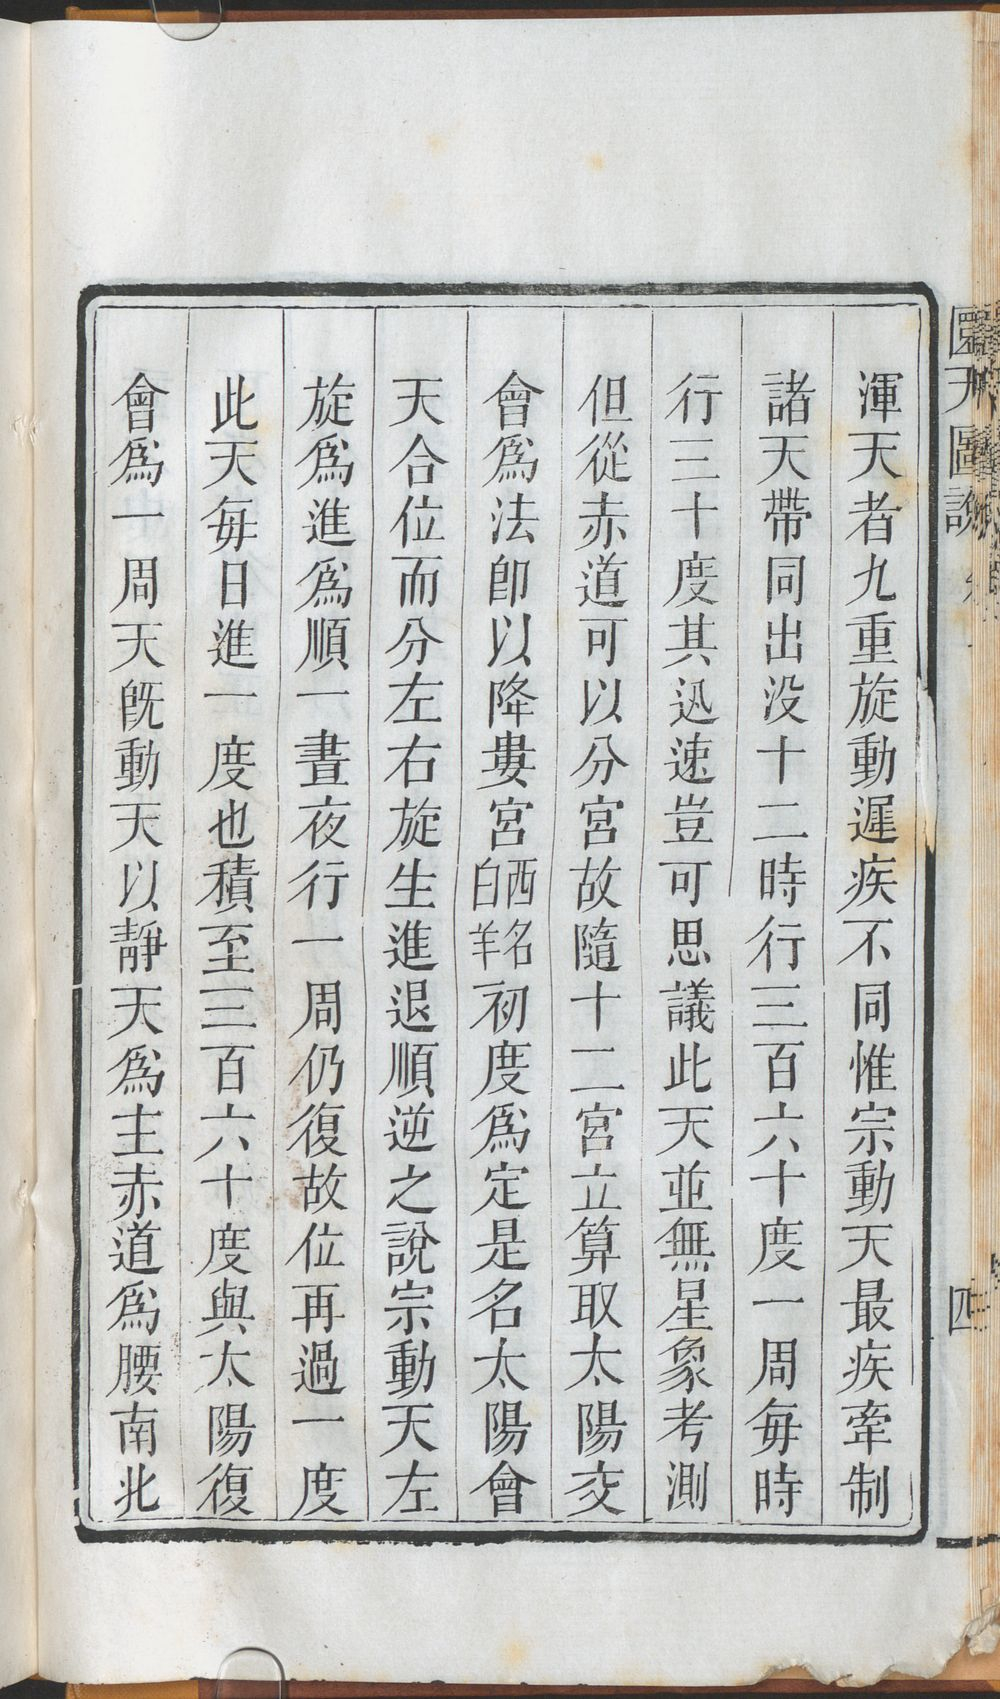 渾天者九重旋動遲疾不同惟宗動天最疾牽制
諸天帶同出没十二時行三百六十度一周每時
行三十度其迅速豈可思議此天並無星象考測
但從赤道可以分宮故隨十二宮立算取太陽交
會爲法卽以降婁宮西名白羊初度爲定是名太陽會
天合位而分左右旋生進退順逆之說宗動天左
旋爲進爲順一晝夜行一周仍復故位再過一度
此天每日進一度也積至三百六十度與太陽復
會爲一周天旣動天以靜天爲主赤道爲腰南北
圜天圖說
四